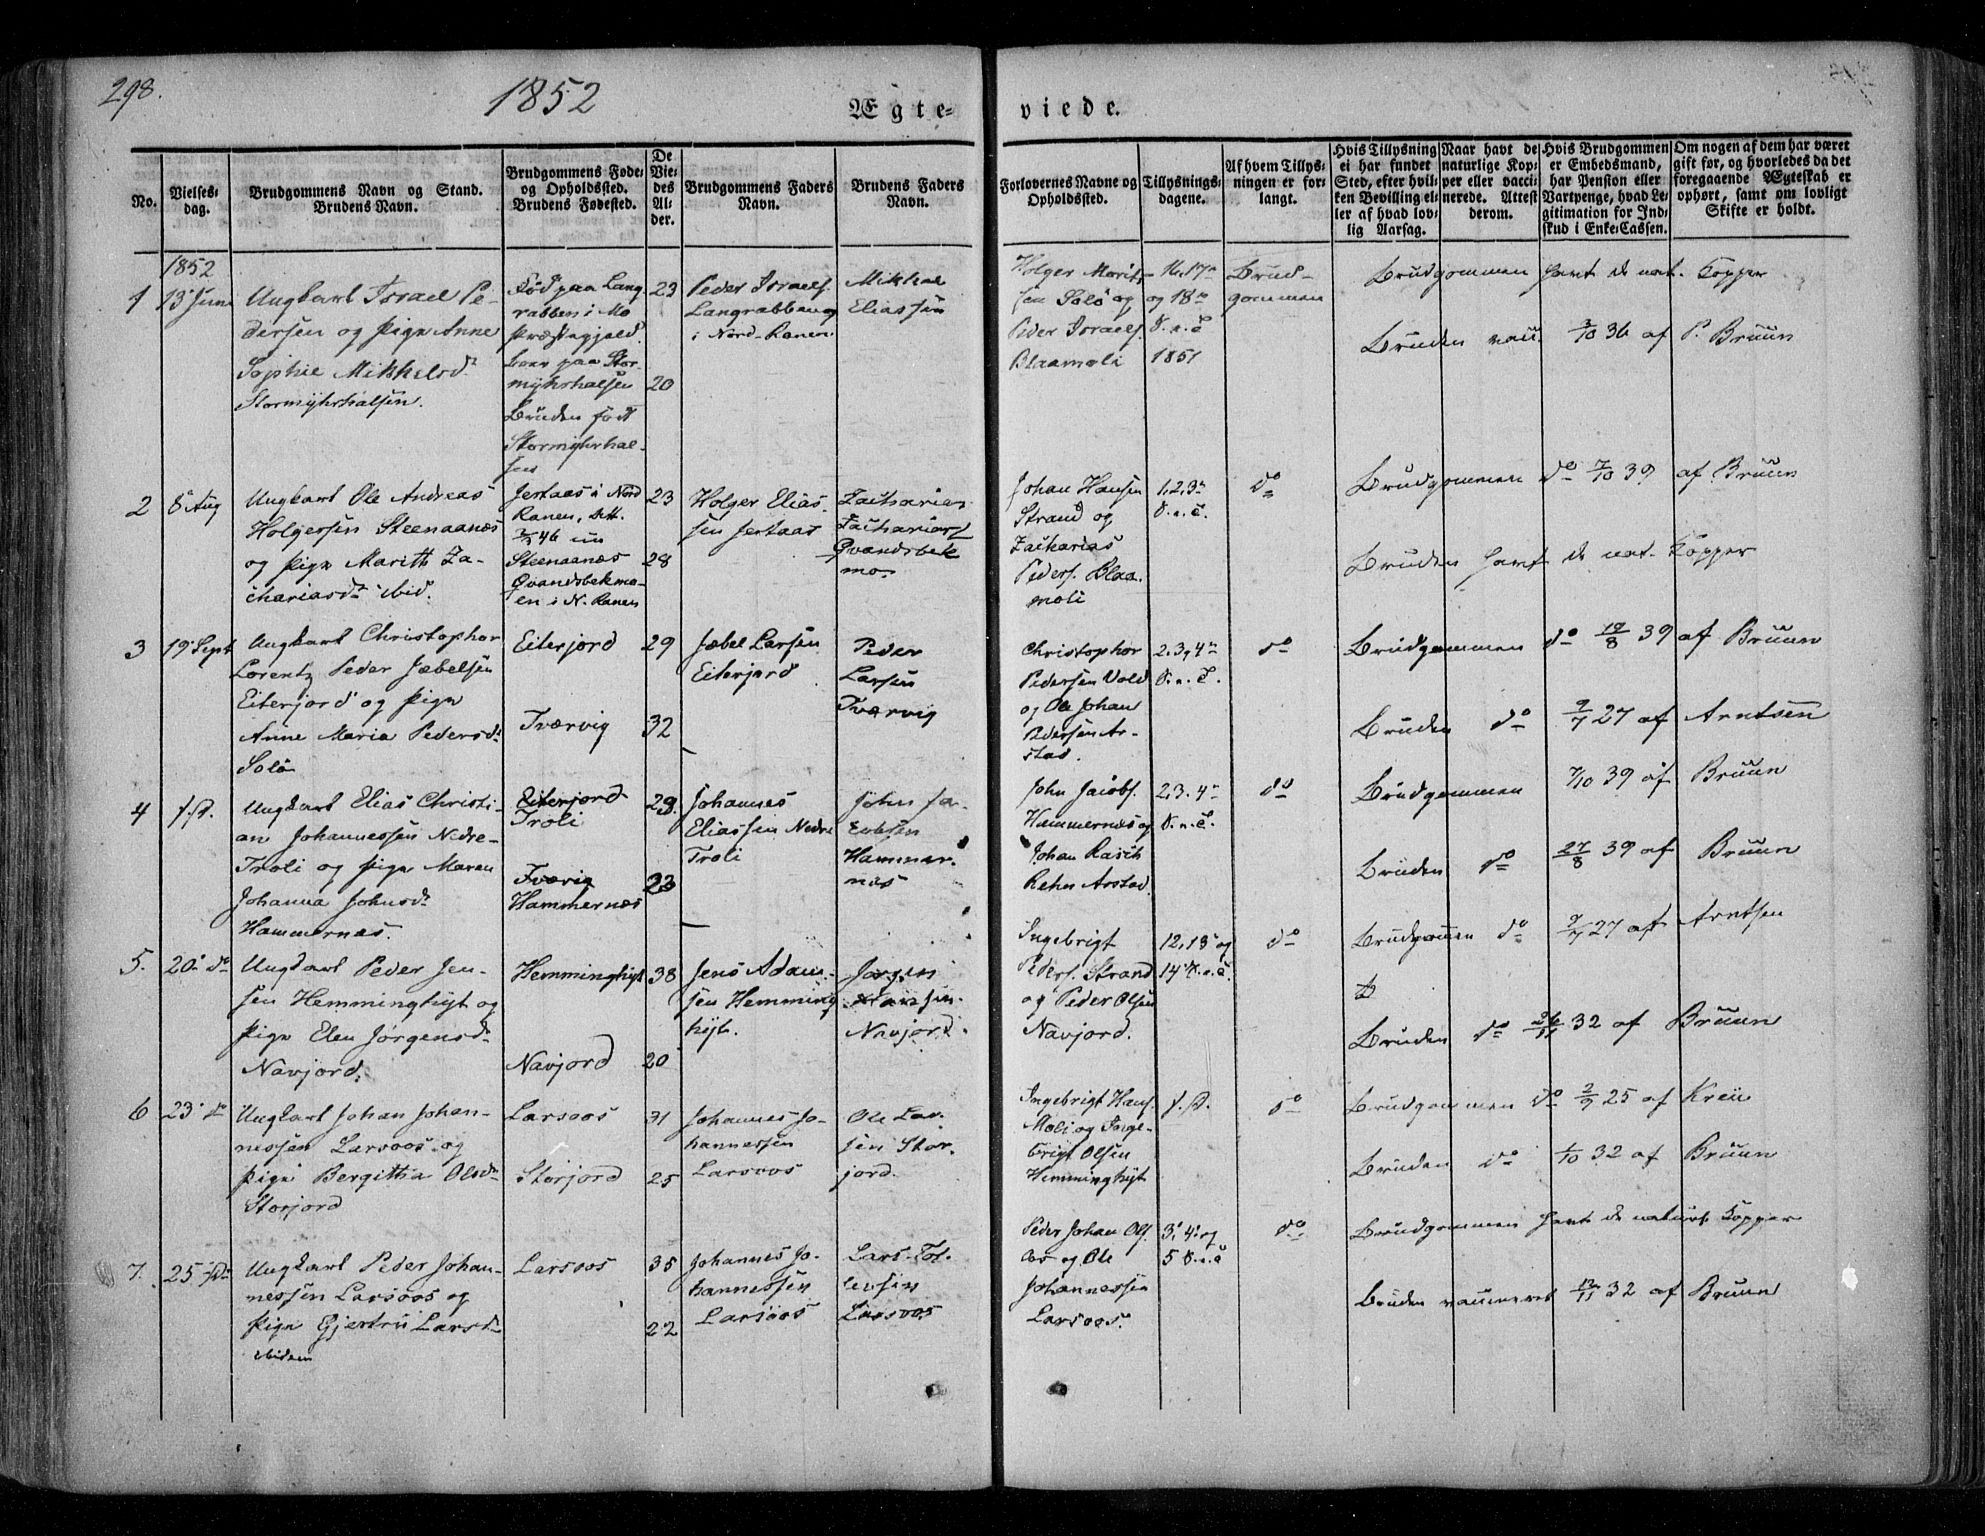 298.
1852
Ægte=
viede.
No.
Vielses-
dag.
Brudgommens Navn og Stand.
Brudens Navn.
Brudgommens Føde-
og Opholdssted.
Brudens Fødested.
De
Vie-
des
Al-
der.
Brudgommens Faders
Navn.
Brudens Faders
Navn.
Forlovernes Navne og
Opholdssted.
Tillysnings-
dagene.
Af hvem Tillys-
ningen er for-
langt.
Hvis Tillysning
ei har fundet
Sted, efter hvil-
ken Bevilling el-
ler af hvad lov-
lig Aarsag.
Naar havt de
naturlige Kop-
per eller vacci-
nerede. Attest
derom.
Hvis Brudgommen
er Embedsmand,
har Pension eller
Vartpenge, hvad Le-
gitimation for Ind-
skud i Enke-Cassen.
Om nogen af dem har været
gift før, og hvorledes da det
foregaaende Ægteskab er
ophørt, samt om lovligt
Skifte er holdt.
1852
1
13 Juni
Ungkarl Israel Pe-
dersen og Pige Anne
Sophie Mikkelsd.
Stormyhrhalsen.
Fød paa Lang
rabben i Mo
Præstegjeld.
paa Stor-
myhrhalsen
Bruden født
Stormyhrhal-
sen
23
20
Peder Israels.
Langrabben
i Nord-Ranen
Mikkel
Eliassen
Holger Morits-
sen Solø og
Peder Israels.
Blaamoli
16. 17
og 18
S. e. T.
1851
Brud-
gommen
Brudgommen havt de nat. Kopper
Bruden vacc. 3/10 36 af P. Bruun
2
8 Aug
Ungkarl Ole Andreas
Holgersen Steenaanæs
og Pige Marith Za-
chariasd. ibid.
Jertaas i Nord
Ranen,
Steenaanæs
Qvandsbekmo-
en i N. Ranen
23
28
Holger Elias-
sen Jertaas
Zacharias
Zacharias.
Qvandsbek
mo.
Johan Hansen
Strand og
Zackarias
Peders. Blaa-
moli
1, 2, 3
S. e. T.
do
Brudgommen do 7/10 39 af Bruun
Bruden havt de nat. Kopper
3
19 Sept
Ungkarl Christopher
Lorentz Peder Jæbelsen
Eiterjord og Pige
Anne Maria Pedersd.
Solø
Eiterjord
Tværvig
29
32
Jæbel Larsen
Eiterjord
Peder
Larsen
Tværvig
Christopher
Pedersen Vold
og Ole Johan
Pedersen Ar-
stad.
2. 3. 4
S. e. T.
do
Brudgommen do 19/8 39 af Bruun
Bruden do 9/7 27 af Arntsen
4
s. D.
Ungkarl Elias Christi-
an Johannessen Nedre-
Troli og Pige Maren
Johanna Johnsd.
Hammernæs.
Eiterjord
Troli
Tværvig
Hammernæs
29.
23
Johannes
Eliassen Nedre
Troli
John Ja-
cobsen
Hammer-
næs
John Jacobs.
Hammernæs og
Johan Rasch
Rehn Arstad.
2. 3. 4
S. e. T.
do
Brudgommen 7/10 39 af Bruun
Bruden do 27/8 39 af Bruun
5.
20 do
Ungkarl Peder Jen-
sen Hemminghyt og
Pige Elen Jørgensd.
Navjord.
Hemminghyt
Navjord
38
20
Jens Adam-
sen Hemming
hyt.
Jørgen
Navjord.
Ingebrigt
Peders. Strand
og Peder Olsen
Navjord.
12, 13 og
14 S. e. T.
do
Brudgommen do 9/7 27 af Arntsen
Bruden do 26/11 32 af Bruun
6
23 do
Ungkarl Johan Johan-
nessen Larsoos og
Pige Bergitha Olsd.
Storjord
Larsoos
Storjord
31
25
Johannes Jo-
hannessen
Larsoos
Ole Lar-
sen Stor-
jord.
Ingebrigt Hans.
Moli og Inge-
brigt Olsen
Hemminghyt
s. D.
do
Brudgommen do 2/9 25 af Kreü
Bruden do 1/10 32 af Bruun
7.
25 do
Ungkarl Peder Johan-
nessen Larsoos og
Pige Gjertru Larsd.
ibidem
Larsoos
35
22
Johannes Jo-
hannessen
Larsoos
Lars Tol-
levsen
Larsoos
Peder Johan Ols.
og Ole
Johannessen
Larsoos.
3, 4 og
5 S. e. T.
do
Brudgommen havt de naturl. Kopper
Bruden vaccineret 12/11 32 af Bruun